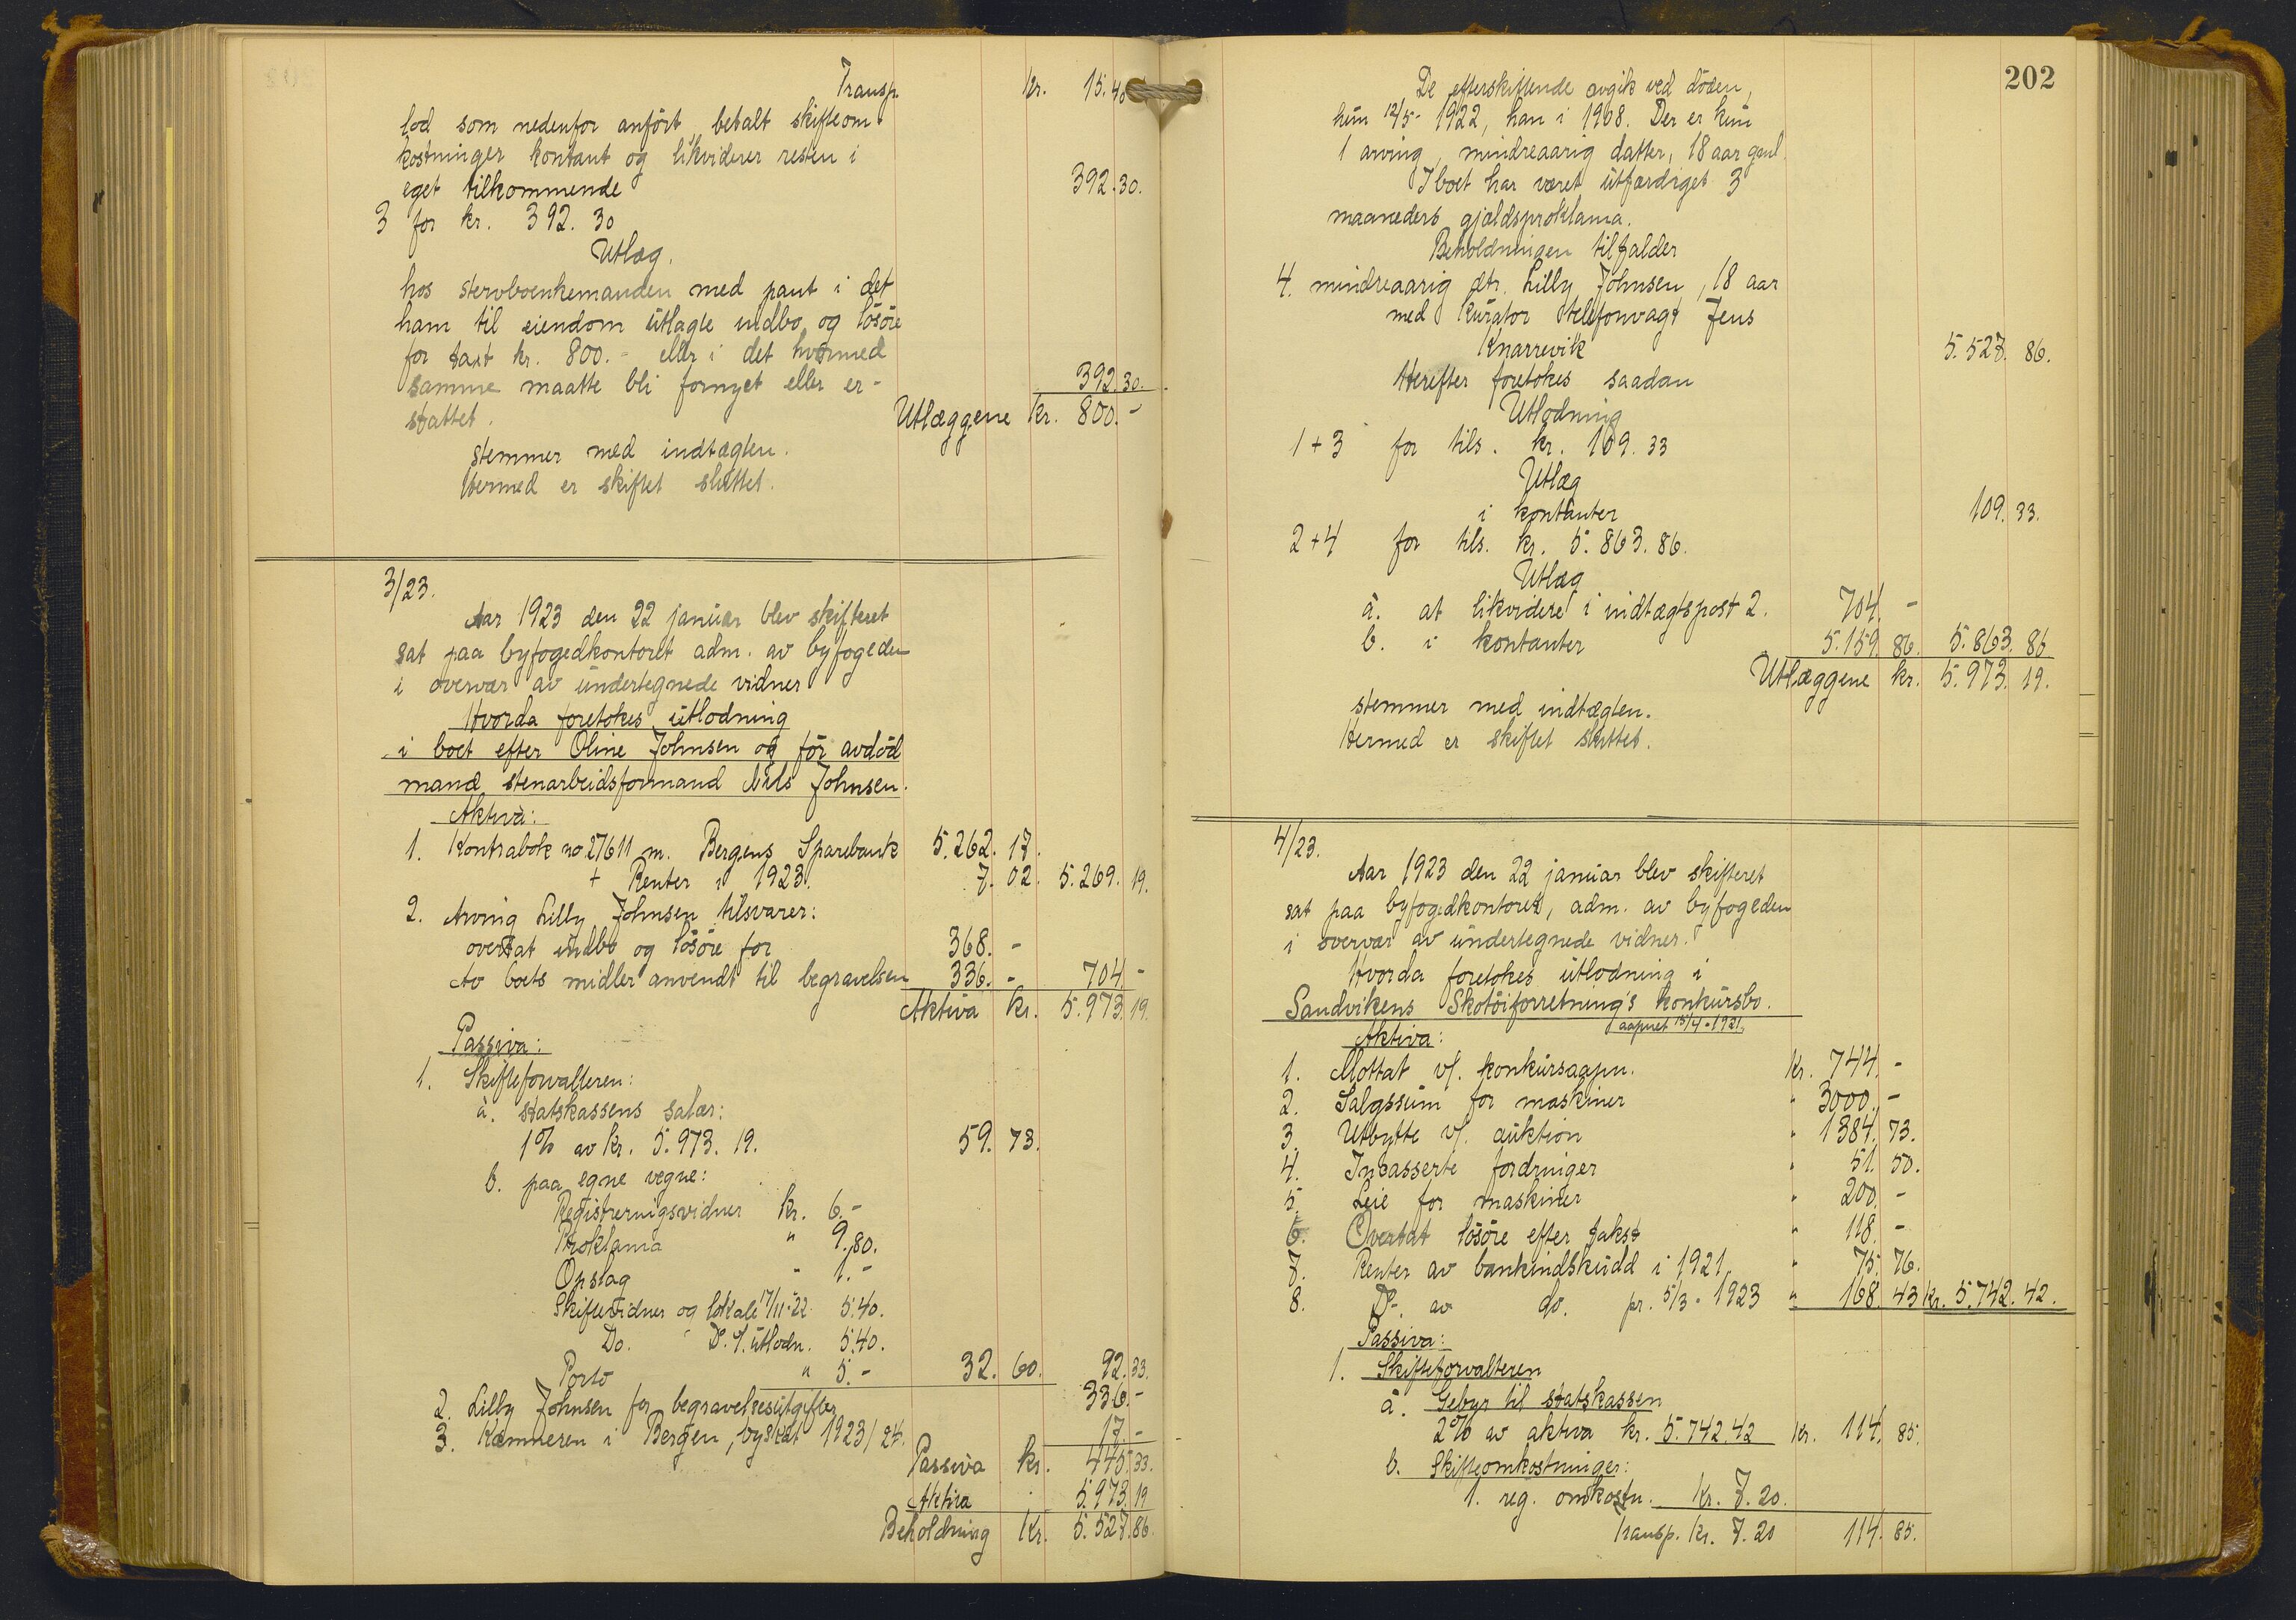 Transp. kr. 15.40
lod som nedenfor anført, betalt skifteom-
kostninger kontant og likviderer resten i
eget tilkommende 392.30.
3 for kr. 392.30
Utlæg.
hos stervboenkemanden med pant i det
ham til eiendom utlagte indbo og løsøre
for takst kr. 800.- eller i det hvormed
samme maatte bli fornyet eller er- 392.30.
stattet. Utlæggene kr. 800.-
stemmer med indtægten.
Hermed er skiftet sluttet.
3/23.
Aar 1923 den 22 januar blev skifteret
sat paa byfogedkontoret adm. av byfogeden
i overvær av undertegnede vidner
Hvorda foretokes utlodning
i boet efter Oline Johnsen og før avdød
mand stenarbeidsformand Nils Johnsen.
Aktiva:
1. Kontrabok no 27611 m. Bergens Sparebank 5.262. 17.
+ Renter i 1923. 7. 02. 5.269. 19.
2. Arving Lilly Johnsen tilsvarer:
overtat indbo og løsøre for 368. -
Av boets midler anvendt til begravelsen 336. - 704. -
Aktiva kr. 5.973. 19.
Passiva:
1. Skifteforvalteren:
a. statskassens salær:
1% av kr. 5.973. 19. 59. 73.
b. paa egne vegne:
Registreringsvidner kr. 6.-
Proklama " 9.80.
Opslag " 1.-
Skiftevidner og lokale 17/11-22 5.40.
Do. Do. v/. utlodn. 5.40.
Porto " 5.- 32. 60. 92.33.
2. Lilly Johnsen for begravelsesutgifter 336.-
3. Kæmneren i Bergen, byskat 1923/24. 17.-
Passiva kr. 445.33.
Aktiva . 5.973.19
Beholdning kr. 5.527.86.
202
De efterskiftende avgik ved døden,
hun 12/5- 1922, han i 1908. Der er kun
1 arving, mindreaarig datter, 18 aar gml.
I boet har været utfærdiget 3
maaneders gjældsproklama.
Beholdningen tilfalder
4. mindreaarig dtr. Lilly Johnsen, 18 aar
med kurator telefonvagt Jens
Knarrevik 5.527. 86.
Herefter foretokes saadan
Utlodning
1+3 for tils. kr. 109.33
Utlæg
i kontanter 109. 33.
2+4 for tils. kr. 5.863.86.
Utlæg
a. at likvidere i indtægtspost 2. 704. -
b. i kontanter 5.159. 86. 5.863. 86
Utlæggene kr. 5.973. 19.
stemmer med indtægten.
Hermed er skiftet sluttet.
4/23.
Aar 1923 den 22 januar blev skifteret
sat paa byfogedkontoret, adm. av byfogeden
i overvær av undertegnede vidner.
Hvorda foretokes utlodning i
Sandvikens Skotøiforretning's konkursbo.
aapnet 15/4-1921.
Aktiva:
1. Mottat v/. konkursaapn. kr. 744. -
2. Salgssum for maskiner " 3000. -
3. Utbytte v/. auktion " 1384. 73.
4. Incasserte fordringer " 51. 50.
5. Leie for maskiner " 200. -
6. Overtat løsøre efter takst " 118. -
7. Renter av bankindskudd i 1921. " 75. 76.
8. Do. av do. pr. 5/3-1923 " 168. 43 kr. 5.742.42.
Passiva:
1. Skifteforvalteren
a. Gebyr til statskassen
2% av aktiva kr. 5.742.42 kr. 114. 85.
b. Skifteomkostninger:
1. reg. omkostn. kr. 7.20.
Transp. kr. 7.20 114. 85.